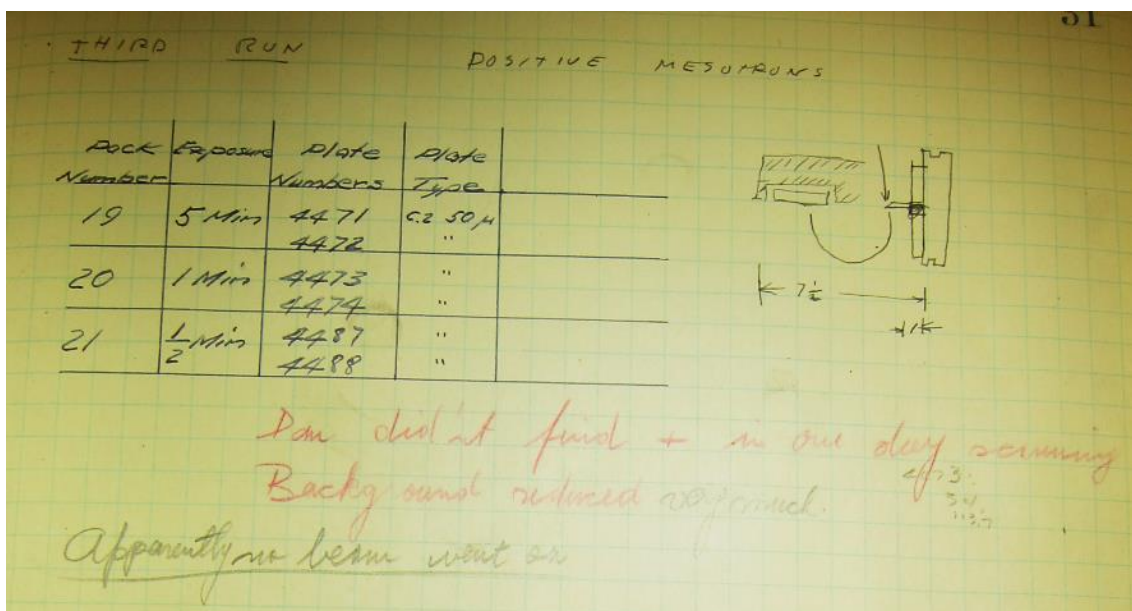 31
THIRD RUN
POSITIVE MESOTRONS
Pack Number Exposure Plate Numbers Plate Type
19 5 Min 4471 C.2 50 μ
4472 "
20 1 Min 4473 "
4474 "
21 1/2 Min 4487 "
4488 "
7 1/2
1
Dan did'nt find + in one day scanning
Background reduced very much.
Apparently no beam went on